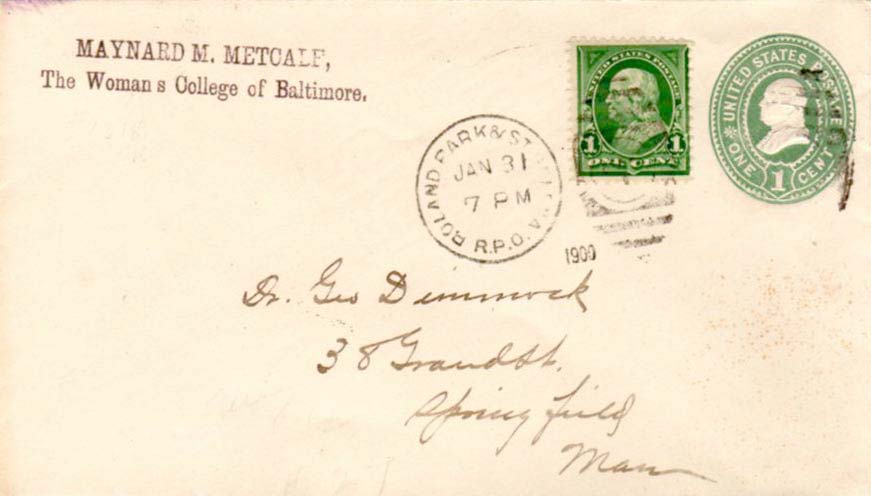 MAYNARD M. METCALF,
The Woman s College of Baltimore.
ROLAND PARK & ST.
JAN 31
7 PM
R.P.O.
1900
UNITED STATES POSTAGE
1 1
ONE CENT
UNITED STATES POSTAGE
ONE 1 CENT
Dr. Geo Dimmock
38 Grand St.
Springfield
Mass